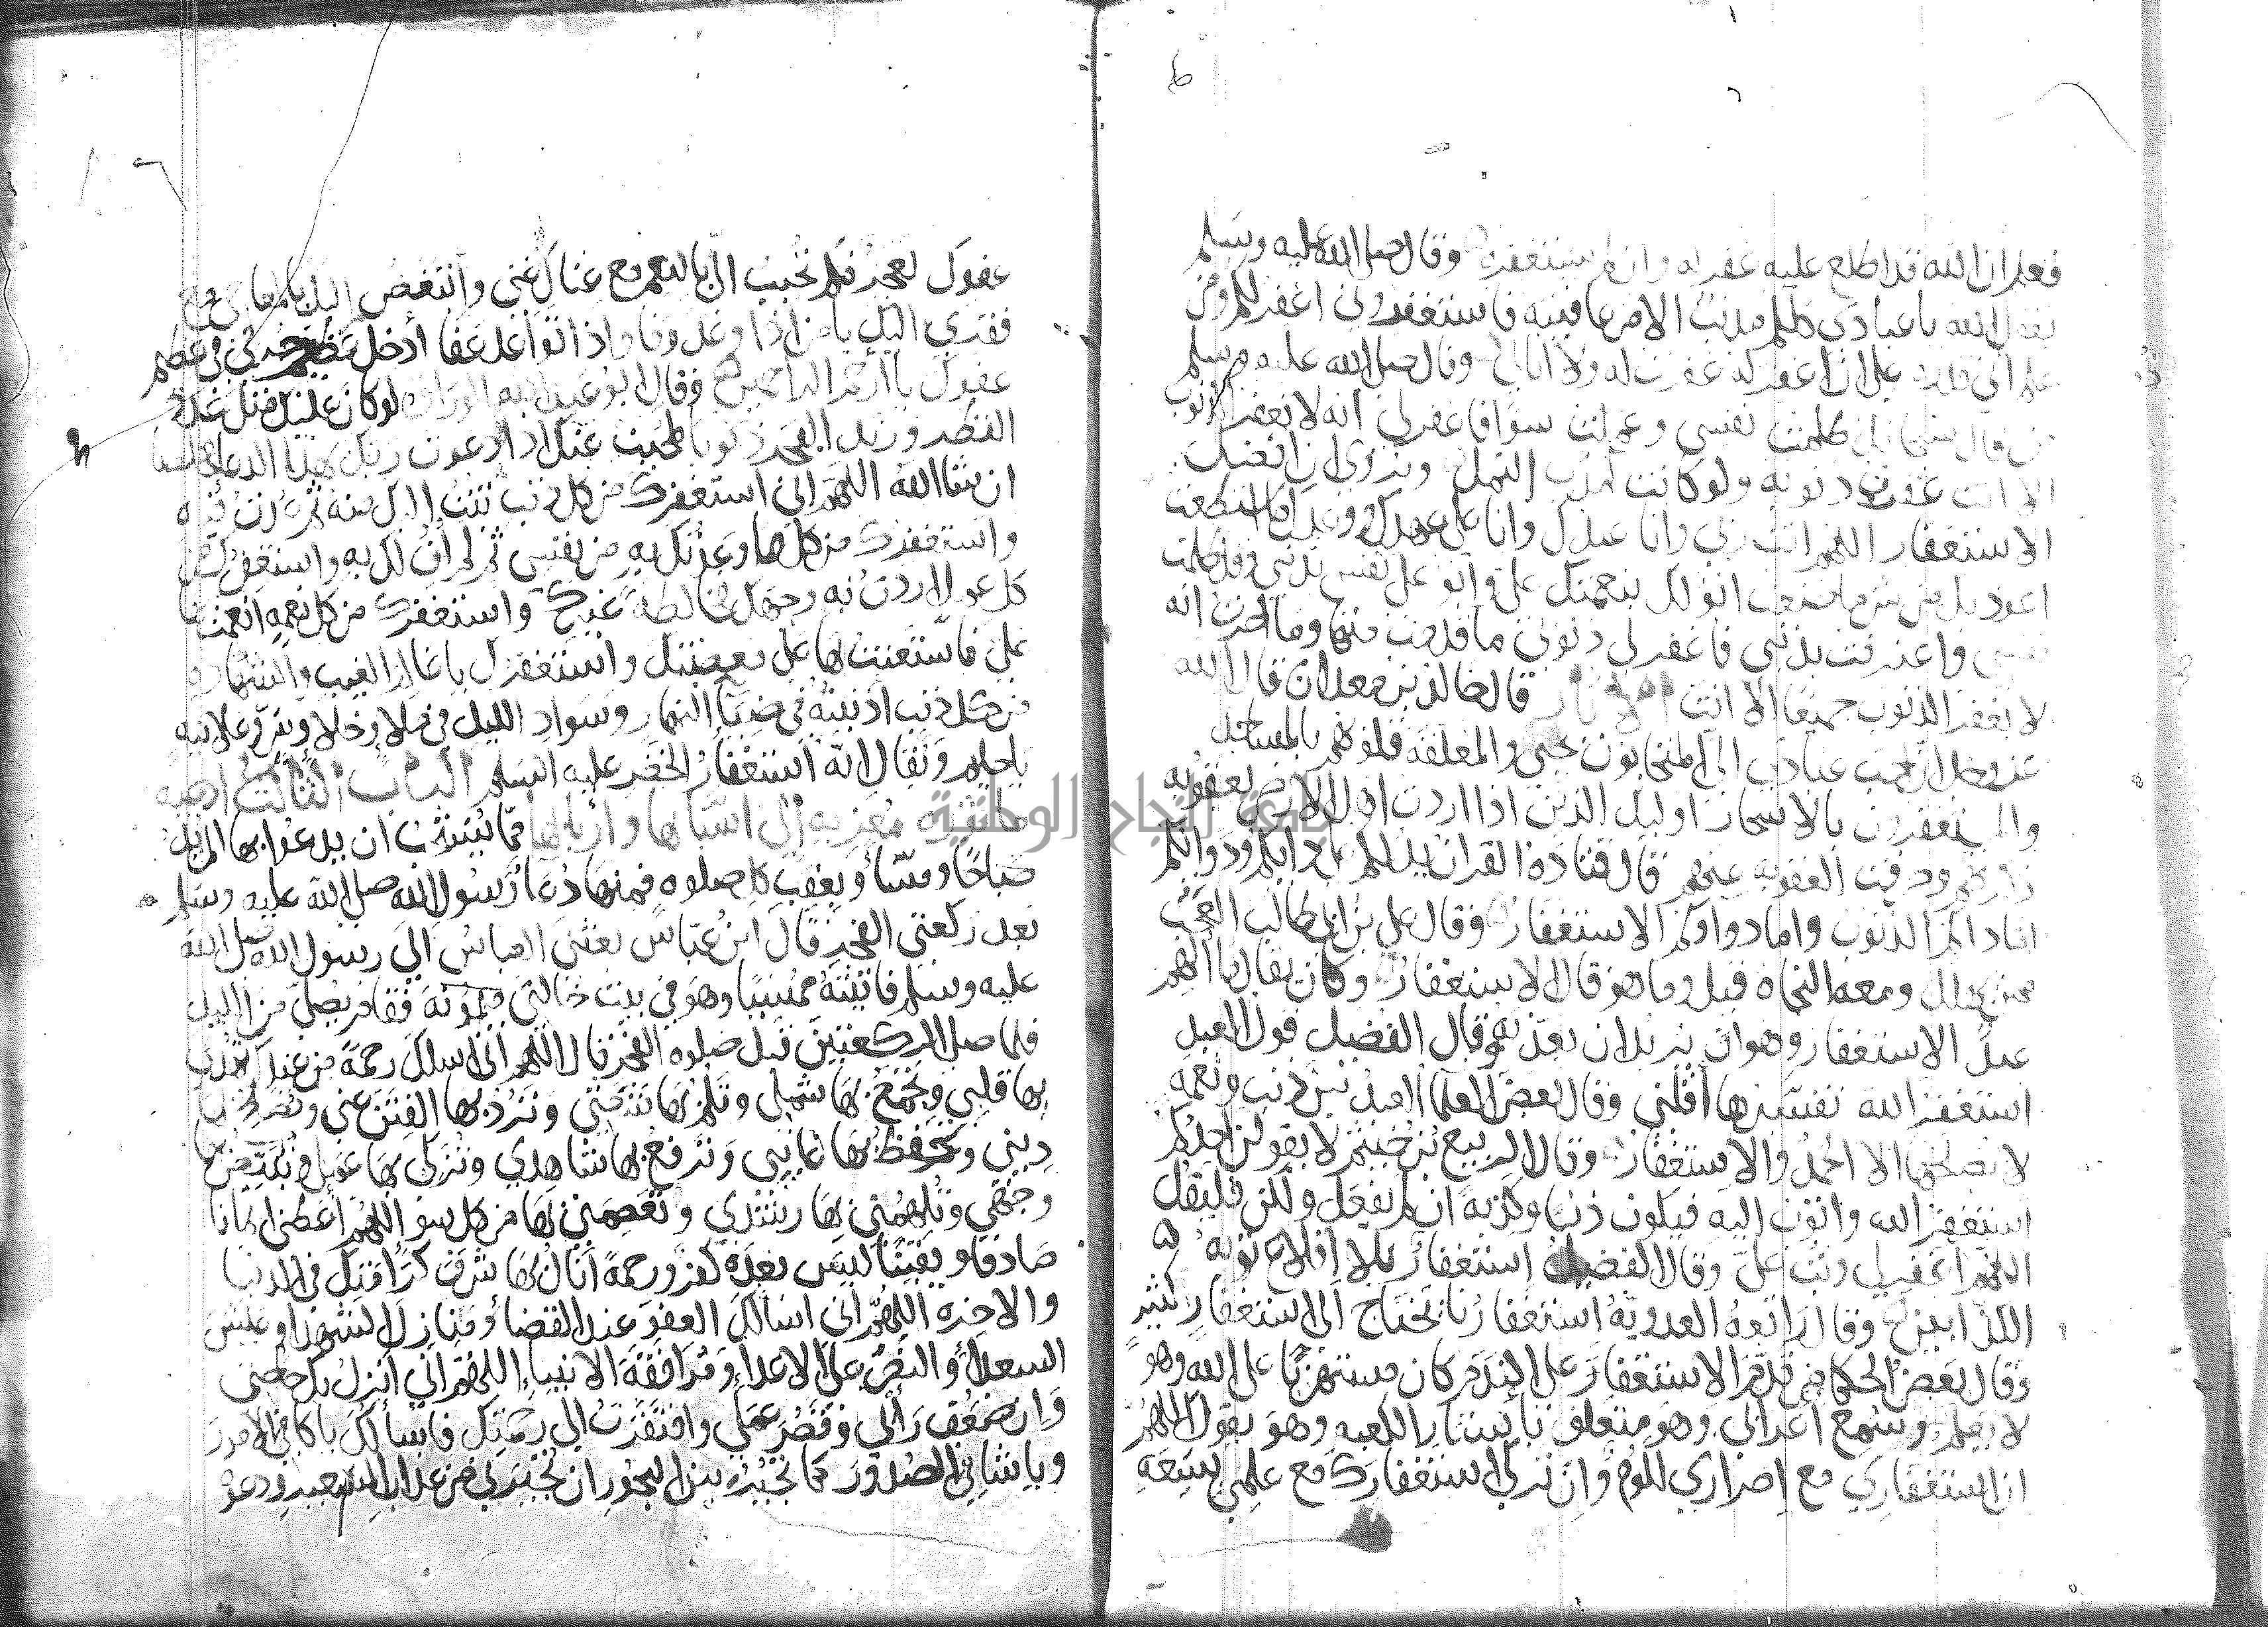 فعلم ان الله قد اطلع عليه غفر له وان لم يستغفره وقال صلى الله عليه وسلم
يقول الله يا عبادي كلكم مذنب الا من عافيته فاستغفروني اغفر لكم ومن
علم اني قدره على ان اغفر له غفرت له ولا ابالي وقال صلى الله عليه وسلم
من قال سبحانك ظلمت نفسي وعملت سوا فاغفر لي انه لا يغفر الذنوب
الا انت غفرت ذنوبه ولو كانت كمدب النمل ويروى ان افضل
الاستغفار اللهم انت ربي وانا عبدك وانا على عهدك ووعدك ما استطعت
اعوذ بك من شر ما صنعت ابو لك بنعمتك علي وابو على نفسي بذنبي فقد ظلمت
نفسي واعترفت بذنبي فاغفر لي ذنوبي ما قدمت منها وما اخرت انه
لا يغفر الذنوب جميعا الا انت الاثار قال خالد بن معدان قال الله
عز وجل ان احب عبادي الي المتحابون بحبي والمعلقة قلوبهم بالمساجد
والمستغفرون بالاسحار اوليك الذين اذا اردت اهل الارض بعقوبه
ذكرتهم وصرفت العقوبه عنهم قال قتادة القران يدلكم على دايكم ودوايكم
اما داكم الذنوب واما دواوكم الاستغفار وقال علي بن ابي طالب العجب
ممن يهلك ومعه النجاه قيل وما هو قال الاستغفار وكان يقال ما الهم
عبدا الاستغفار وهو ان يريد ان يعذبه وقال الفضيل قول العبد
استغفر الله تفسيرها اقلني وقال بعض العلما العبد بين ذنب ونعمه
لا يصلحهما الا الحمد والاستغفار وقال الربيع بن خيثم لا يقولن احدكم
استغفر الله واتوب اليه فيكون ذنبا وكذبه ان لم يفعل ولكن فليقل
اللهم اغفر لي وتب علي وقال الفضيل استغفار بلا اقلاع توبه
الكذابين وقالت رابعة العدويه استغفارنا يحتاج الى استغفار كثير
وقال بعض الحكما من قدم الاستغفار على الندم كان مستهزيا على الله وهو
لا يعلم وسمع اعرابي وهو متعلق باستار الكعبه وهو يقول اللهم
ان استغفاري مع اصراري للوم وان تركي استغفارك مع علمي بسعة
عفوك لعجز فكم تحبب الي بالنعم مع غناك عني واتبغض اليك بالمعاصي مع
فقري اليك يا من اذا وعد وفا واذا توا عد عفا ادخل عظيم جرمي في عظيم
عفوك يا ارحم الراحمين وقال ابو عبد الله الوراق لو كان عليك مثل عدد
القطر وزبد البحر ذنوبا لمحيت عنك اذا دعوت ربك بهذا الدعا مخلصا
ان شا الله اللهم اني استغفرك من كل ذنب تبت اليك منه ثم عدت فيه
واستغفرك من كل ما وعدتك به من نفسي ثم لم اف لك به واستغفرك من
كل عمل اردت به وجهك فخالطه غيرك واستغفرك من كل نعمه انعمت بها
علي فاستعنت بها على معصيتك واستغفرك يا عالم الغيب والشهاده
من كل ذنب اذنبته في ضيا النهار وسواد الليل في ملا وخلا وسر وعلانيه
يا حليم ويقال انه استغفار الخضر عليه السلم الباب الثالث ادعيه
ماثوره معزيه الى اسبابها واربابها مما يستحب ان يدعوا بها المريد
صباحا ومسا وبعقب كل صلوه فمنها دعا رسول الله صلى الله عليه وسلم
بعد ركعتي الفجر قال ابن عباس بعثني العباس الي رسول الله صلى الله
عليه وسلم فاتيته ممسيا وهو في بيت خالتي ميمونة فقام يصلي من الليل
فلما صلى الركعتين قبل صلوه الفجر قال اللهم اني اسلك رحمة من عندك تهدي
بها قلبي وتجمع بها شملي وتلم بها شعثي وترد بها الفتن عني وتصلح بها
ديني وتحفظ بها غايبي وترفع بها شاهدي وتزكي بها عملي وتبيض بها
وجهي وتلهمني بها رشدي وتعصمني بها من كل سو اللهم اعطني ايمانا
صادقا ويقينا ليس بعده كفر ورحمة انال بها شرف كرامتك في الدنيا
والاخره اللهم اني اسالك الفوز عند القضا ومنازل الشهدا وعيش
السعدا والنصر على الاعدا ومرافقة الانبيا اللهم اني انزل بك حاجتي
وان ضعف رايي وقصر عملي وافتقرت الي رحمتك فاسالك يا كافي الامور
ويا شافي الصدور كما تجير بين البحور ان تجيرني من عذاب السعير ودعوة
مكتبة النجاح الوطنية